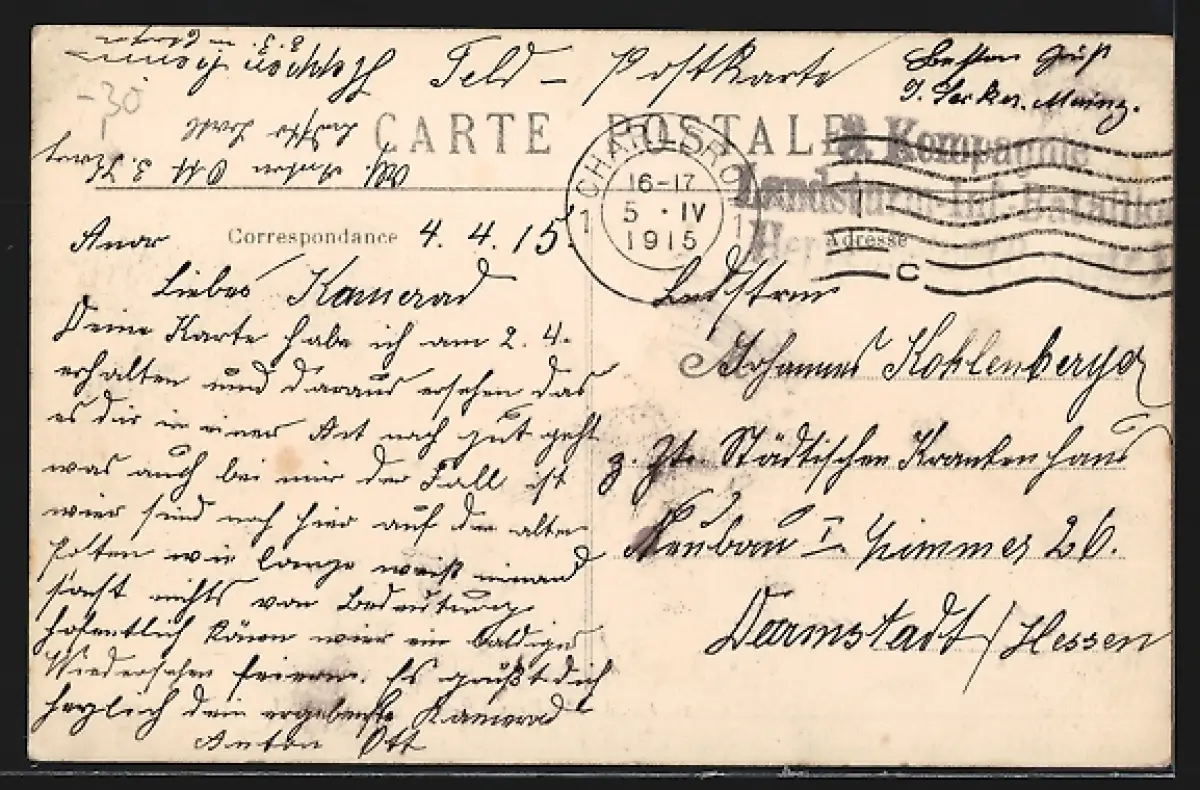 Feld - Postkarte
Besten Gruß
J. Mainz.
-30
CARTE POSTALE
CHARLEROI
16-17
5 · IV
1915
1 1
C
3. Kompagnie
Landsturm-Inf.-Bataillon
Correspondance
Adresse
Anor 4. 4. 15.
Liebes Kamerad
Deine Karte habe ich am 2. 4.
erhalten und daraus ersehen das
es dir in einer Art noch gut geht
was auch bei mir der Fall ist
wier sind noch hier auf den alten
Posten wie lange weiß niemand
sonst nichts von Bedeutung
hofentlich könen wier ein baldiges
Wiedersehen feiern. Es grüßt dich
herzlich dein ergebenste Kamerad
Anton Ott
Ldstrm
Johannes Kohlenberger
z. Zt. Städtischen Krankenhaus
Neubau I. Zimmer 26.
Darmstadt/Hessen
Anton Ott 3.